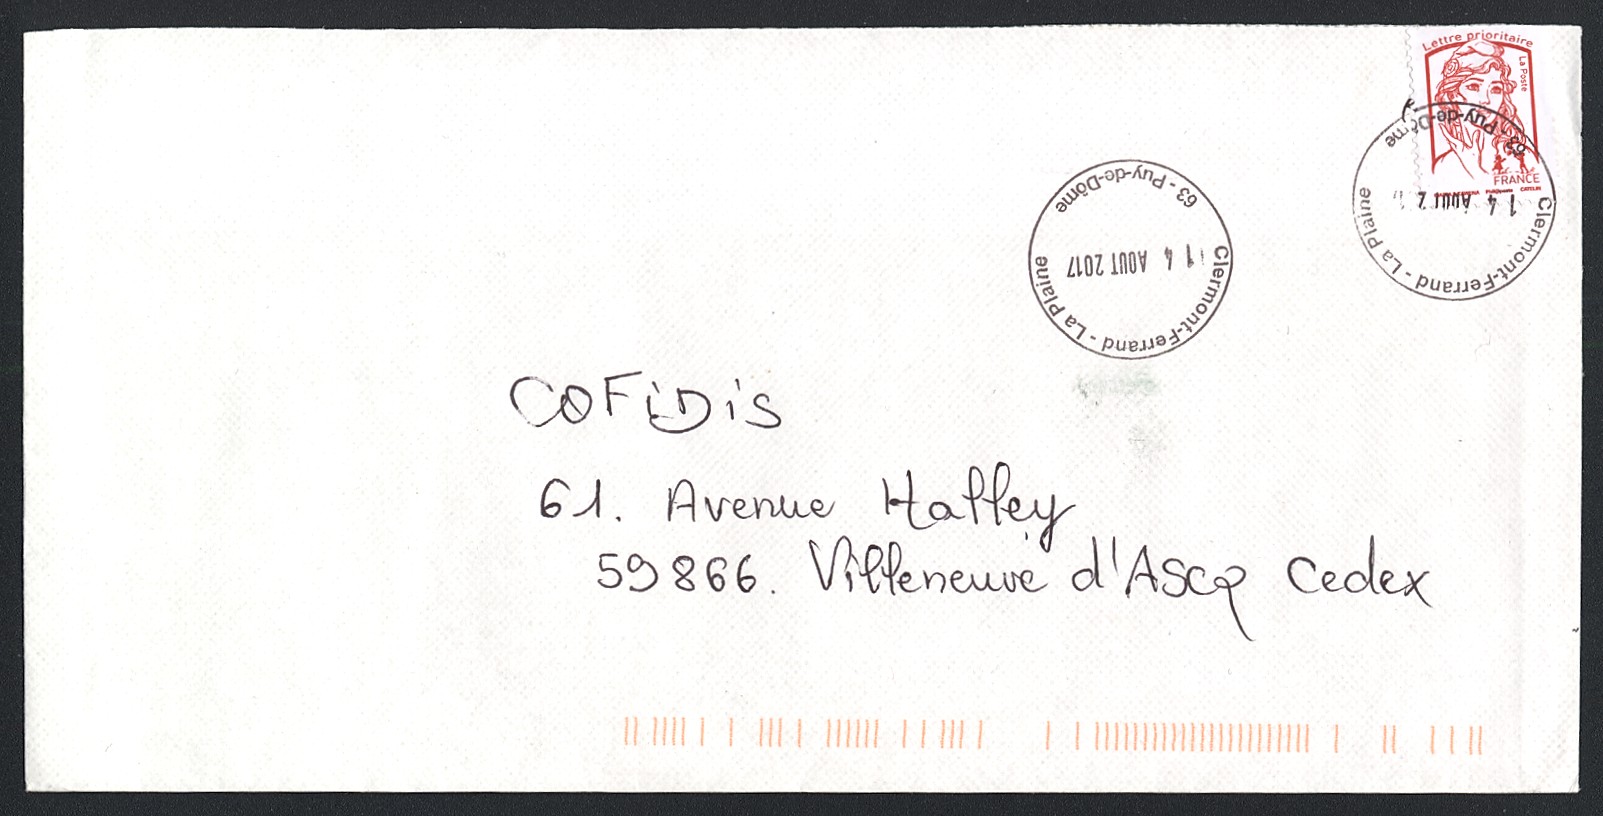 Lettre prioritaire
La Poste
FRANCE
63 - Puy-de-Dôme
14 AOUT 2017
Clermont-Ferrand - La Plaine
63 - Puy-de-Dôme
14 AOUT 2
Clermont-Ferrand - La Plaine
COFIDIS
61. Avenue Halley
59866. Villeneuve d'Ascq Cedex